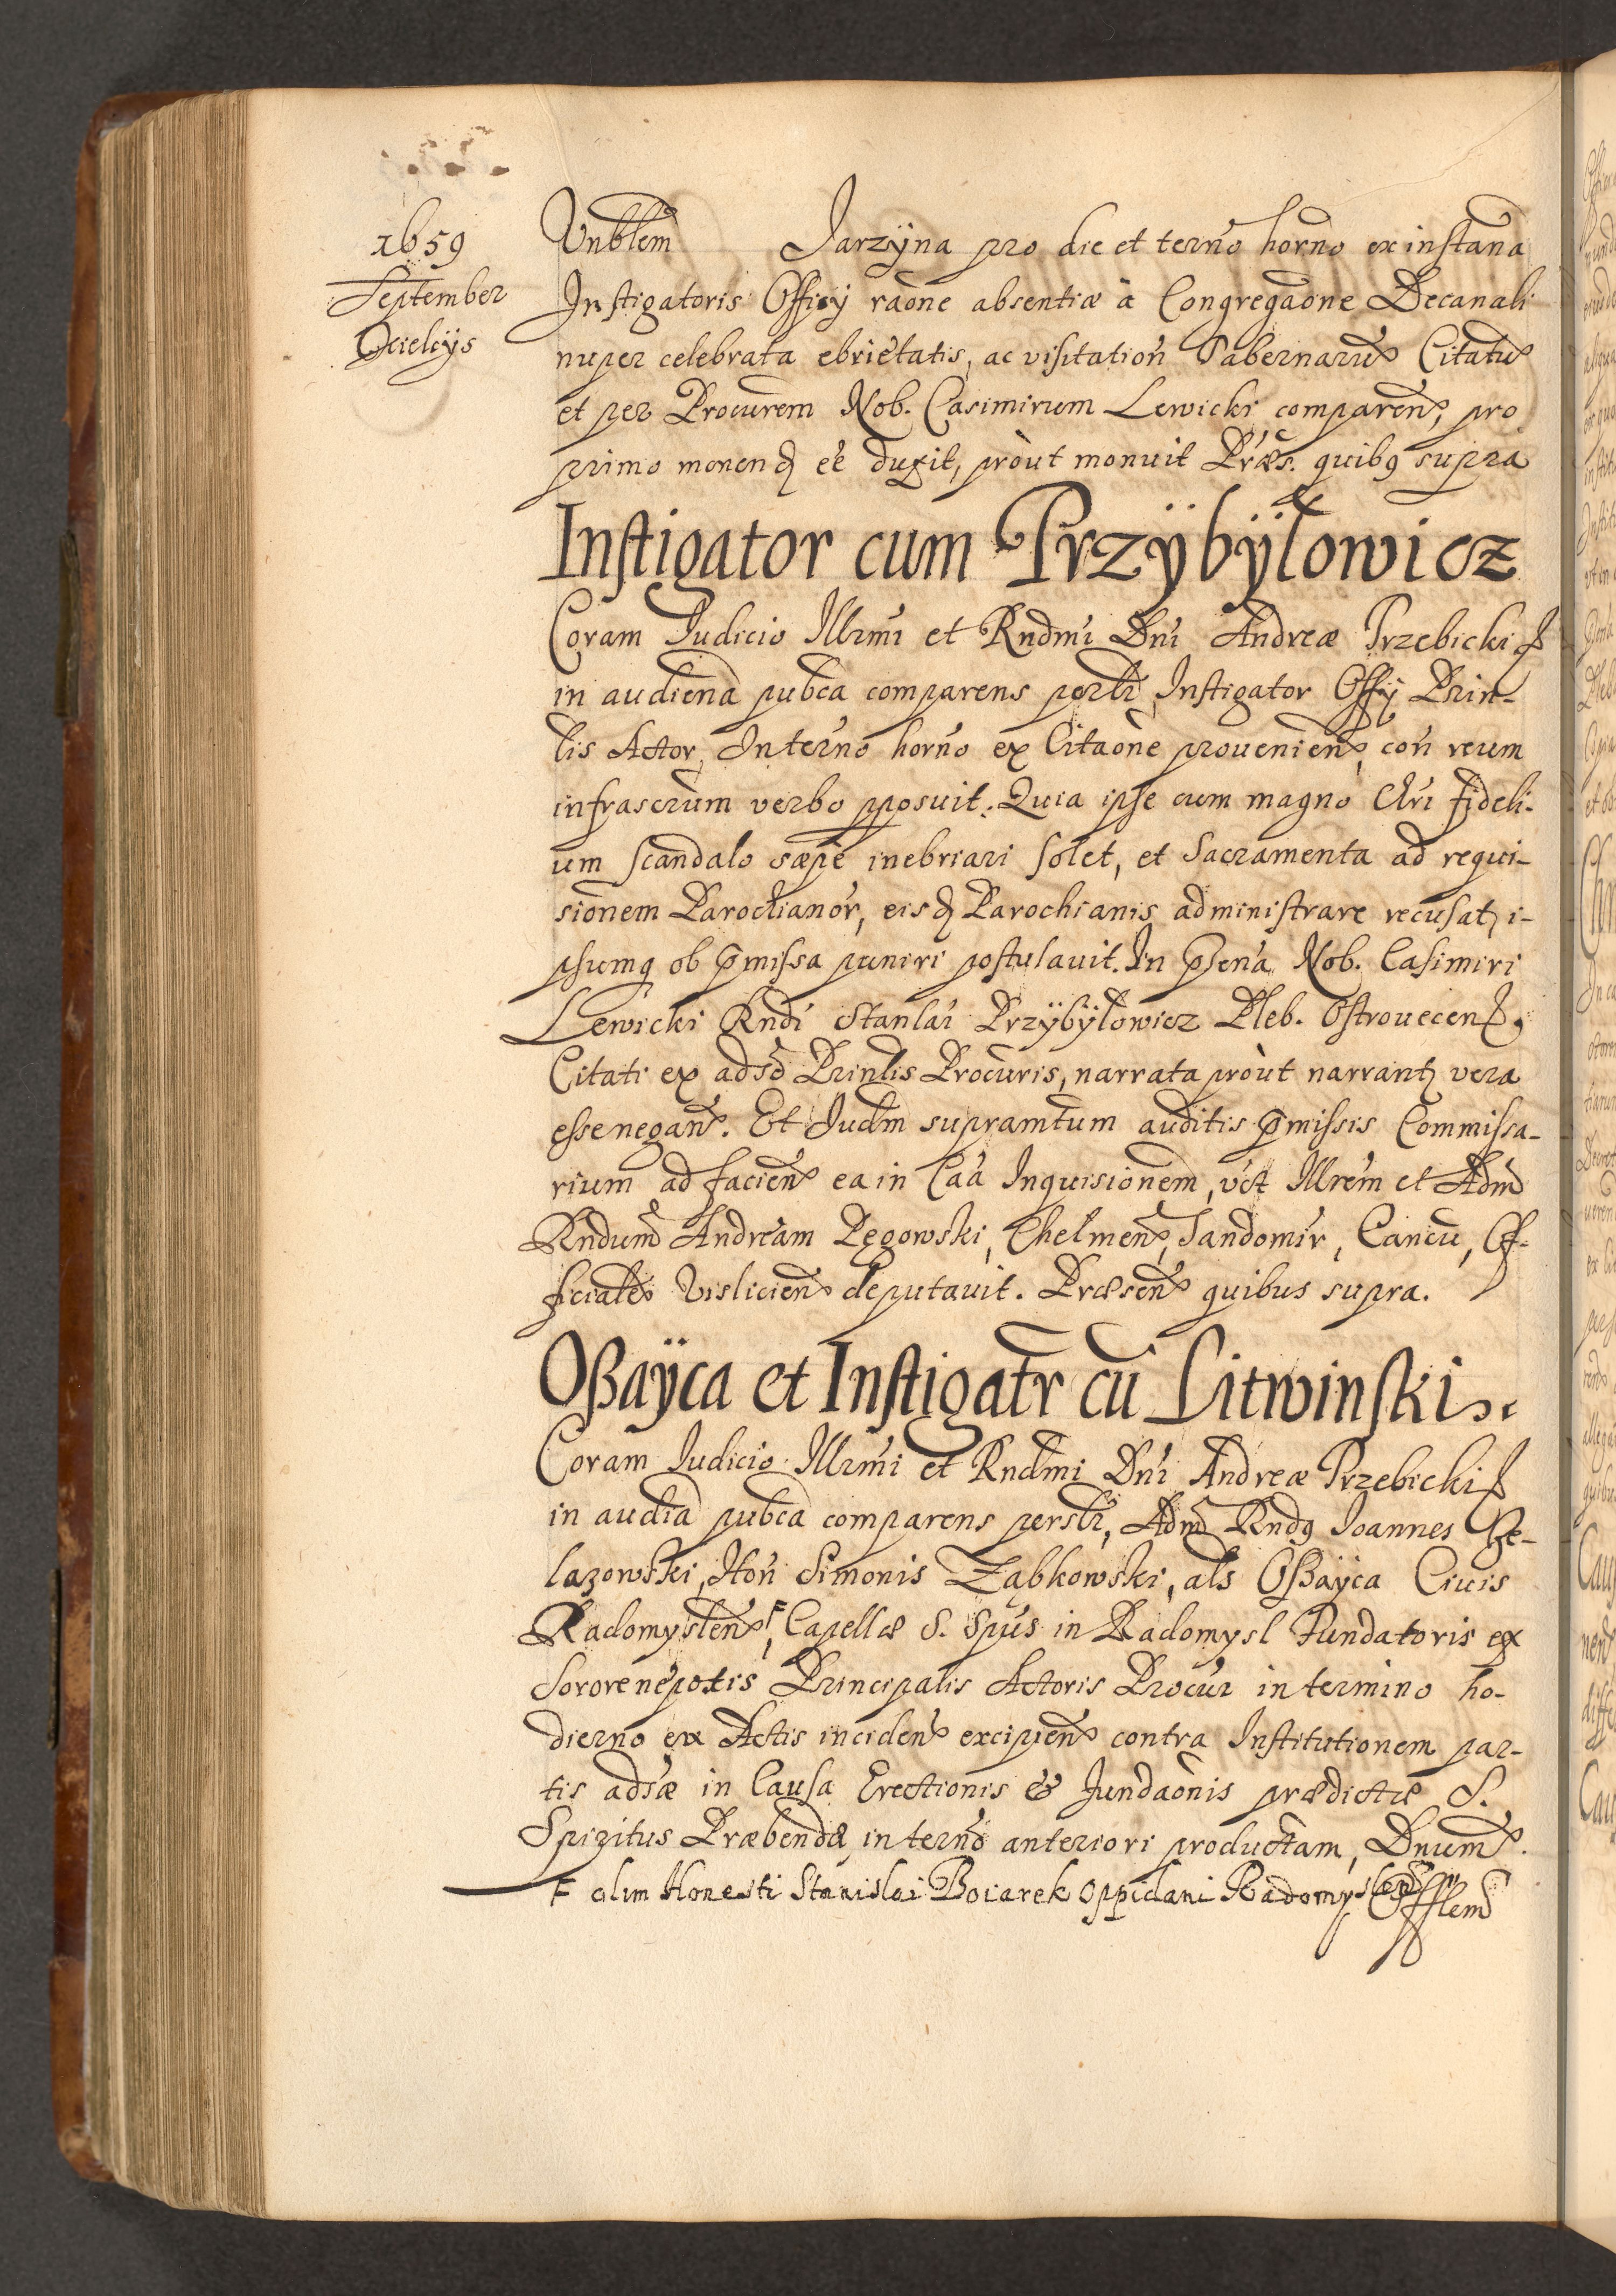 1659
September
Kielcijs
Vnblem Jarzÿna pro die et terno horno ex instana
Instigatoris Officij raone absentiæ à Congregaone Decanali
nuper celebrata ebrietatis, ac visitation Tabernaru Citatu
et per Procurem Nob. Casimirum Lewicki comparen, pro
primo monend eē duxit, pròut monuit Præs. quibq supra
Instigator cum Przÿbÿłowicz
Coram Judicio Illrmi et Rndmi Dni Andreæ Trzebicki
in audiena pubca comparens perslr Instigator Offij Prin-
lis Actor, In terno horno ex Citaone provenien, con reum
infrascrum verbo pposuit. Quia ipse cum magno Chri fideli-
um scandalo sæpè inebriari solet, et Sacramenta ad requi-
sionem Parochianor, eisd Parochianis administrare recusat, i-
psumq ob pmissa puniri postulavit. In psena Nob. Casimiri
Lewicki Rndi Stanlai Przÿbÿłowicz Pleb. Ostrovecen.
Citati ex adso Prinlis Procuris, narrata pròut narrant vera
esse negan. Et Judm supramtum auditis pmissis Commissa-
rium ad facien ea in Caa Inquisionem, vct Illrem et Adm
Rndum Andream Pęgowski, Chelmen, Sandomir, Cancu, Of-
ficiale Vislicien deputavit. Præsen quibus supra.
Oßaÿca et Instigatr cu Litwinski
Coram Judicio Illrmi et Rndmi Dni Andreæ Trzebicki
in audia pubca comparens perslr, Adm Rndq Joannes Że-
lazowski, Hon Simonis Ząbkowski, als Oßaÿca Civis
Radomyslen, F Capellæ S. Spus in Radomysl Fundatoris ex
Sorore nepotis Principalis Actoris Procur in termino ho-
dierno ex Actis inciden excipien contra Institutionem par-
tis adsæ in Causa Erectionis & Fundaonis prædictæ S.
Spiritus Præbendæ, in terno anteriori productam, Dnum
F olim Honesti Stanislai Boiarek oppidani Radomyslen
Offlem